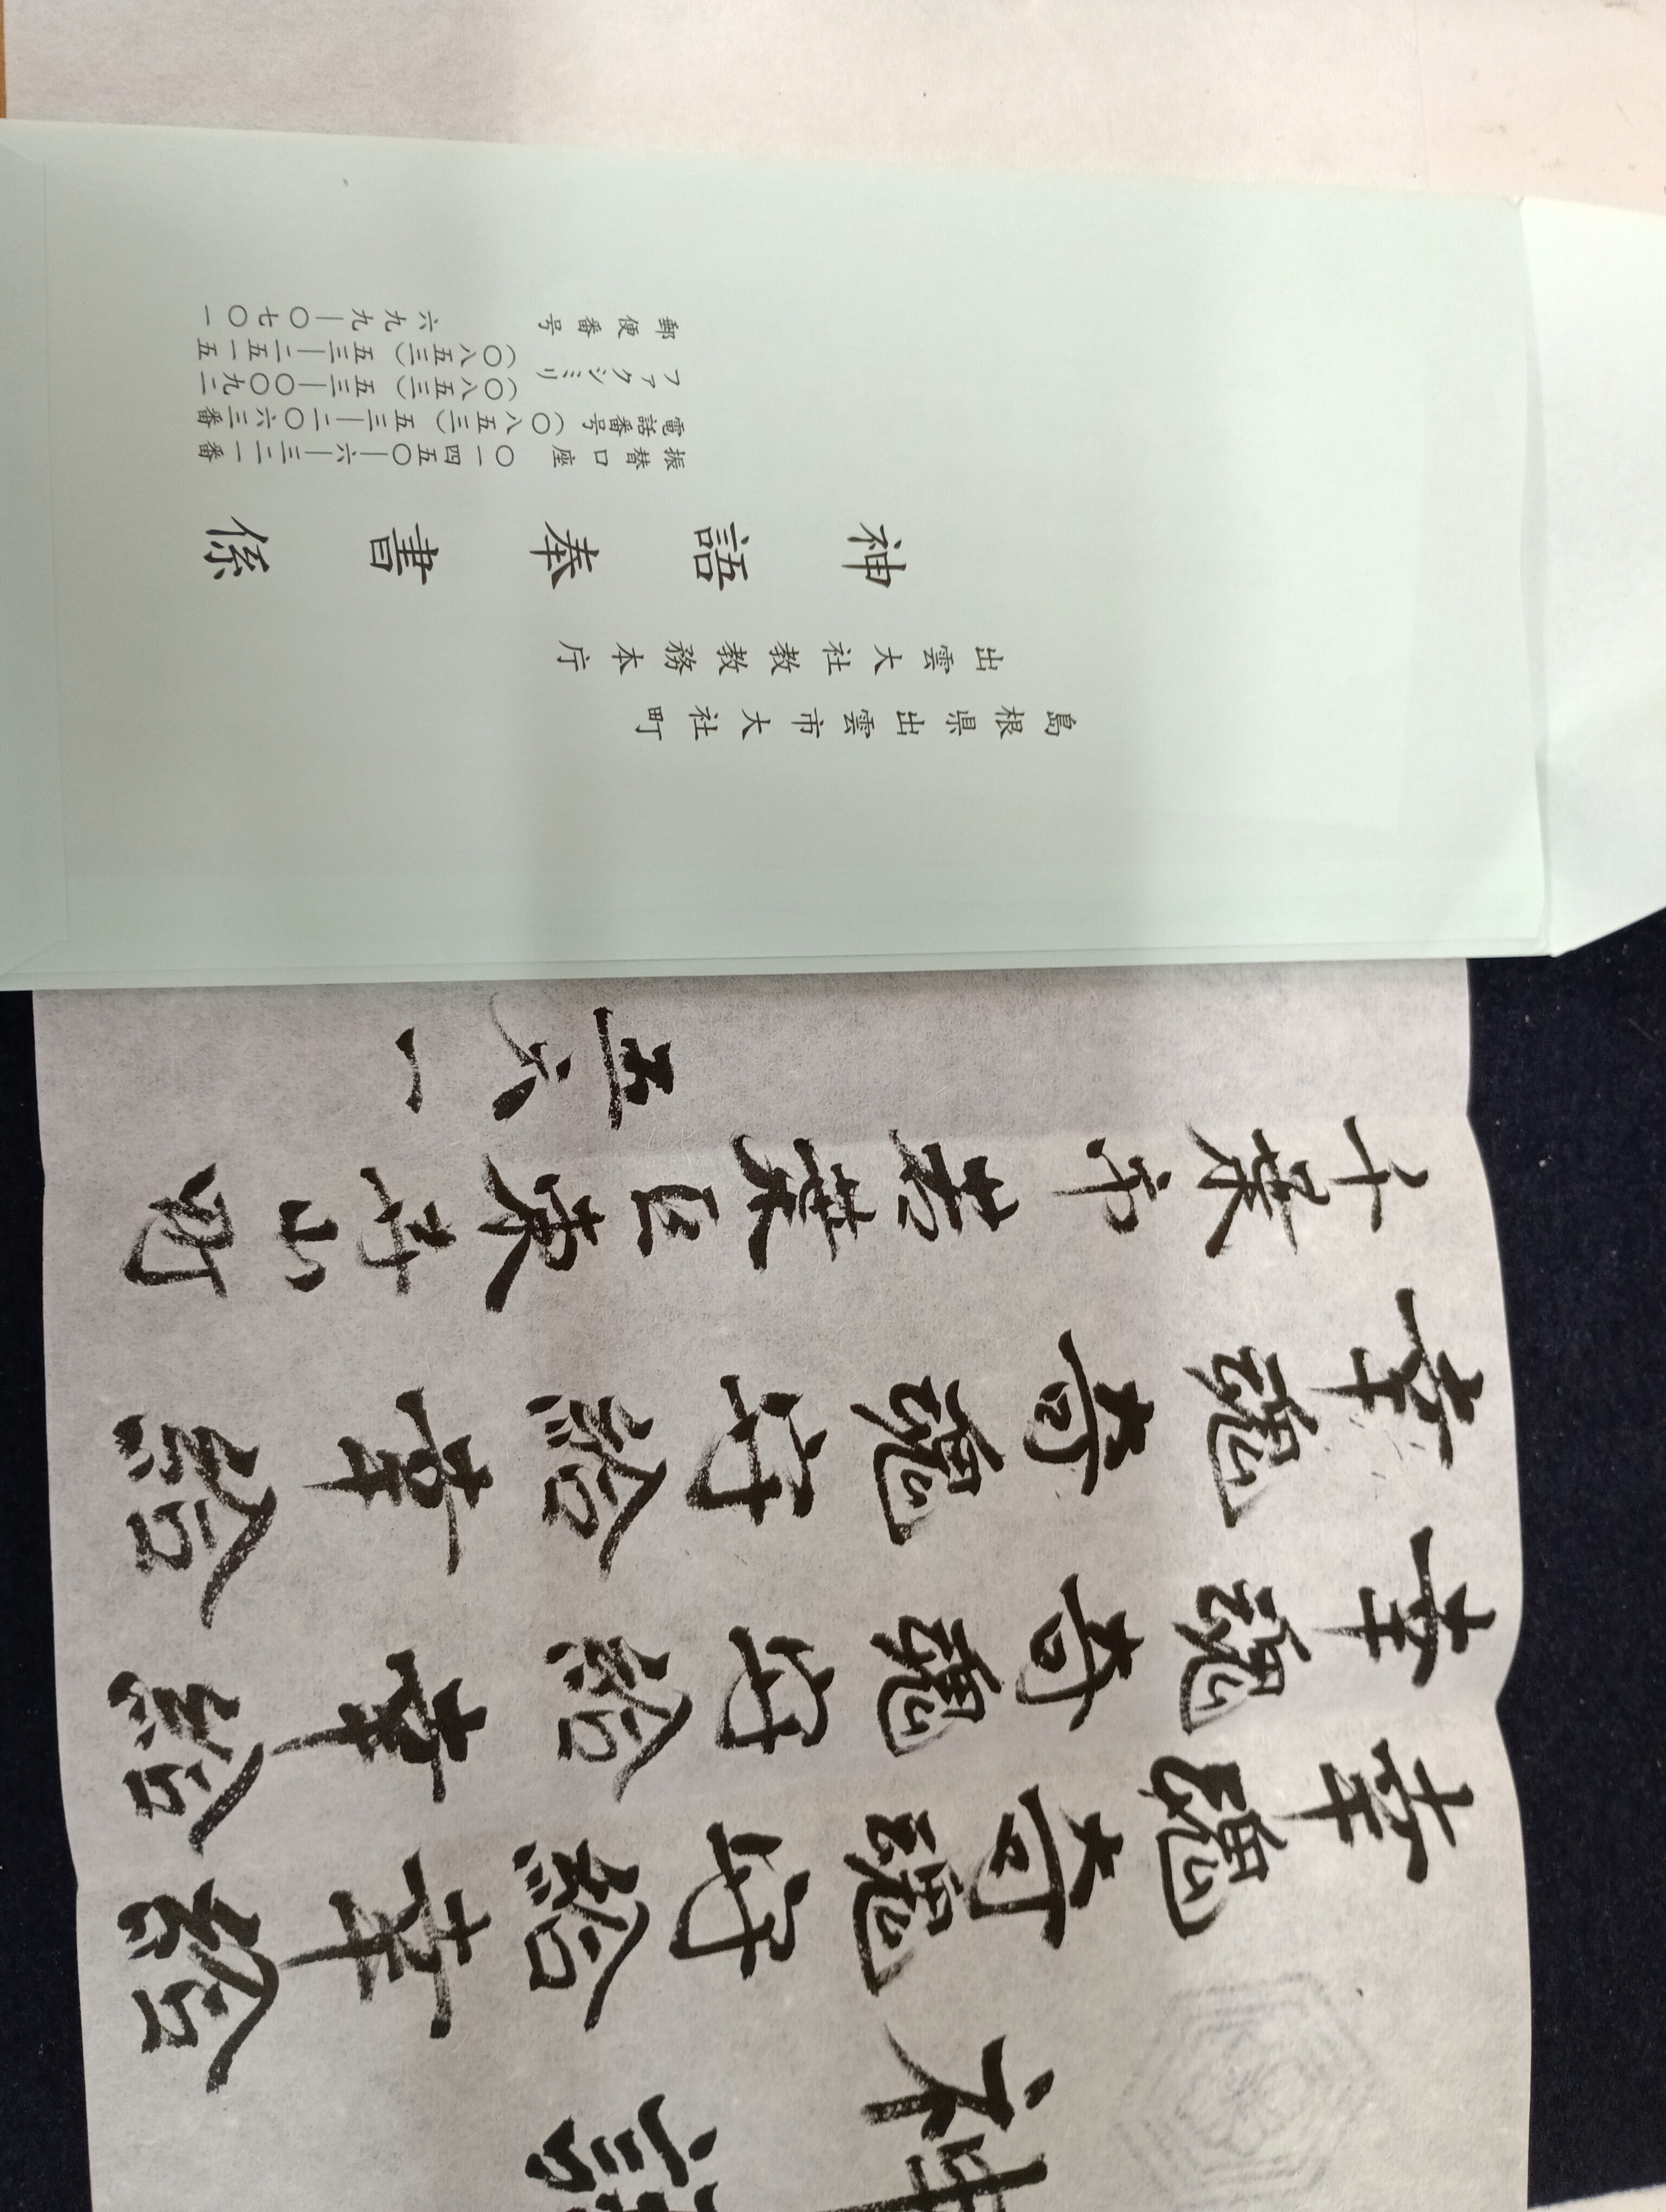 神語
幸魂奇魂守給幸給
幸魂奇魂守給幸給
幸魂奇魂守給幸給
千葉市若葉区東寺山町
五六一
島根県出雲市大社町
出雲大社教教務本庁
神語奉書係
振替口座 〇一四五〇―六―三二一番
電話番号（〇八五三）五三―二〇六三番
ファクシミリ（〇八五三）五三―〇〇九二
（〇八五三）五三―二五一五
郵便番号 六九九―〇七〇一